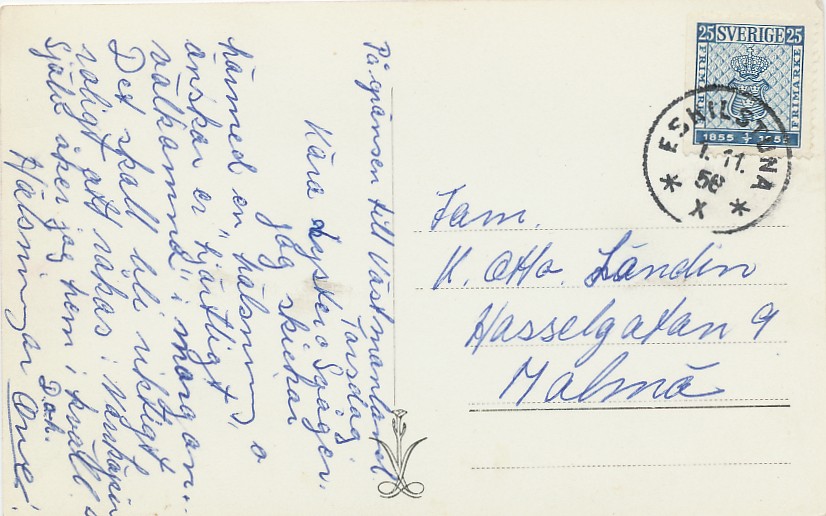 På gränsen till Västmanland.
Torsdag.
Kära Syster o Svåger.
Jag skickar
härmed en "hälsning" o
önskar er "hjärtligt
välkomna" i morgon..
Det skall bli riktigt
roligt att råkas i
Själv åker jag hem i kväll
D.ä.
Hälsningar
25 SVERIGE 25
FRIMÄRKE
FRIMÄRKE
1855 1955
ESKILSTUNA
1.11.
56
X
Fam.
K. Otto. Landin
Hasselgatan 9
Malmö